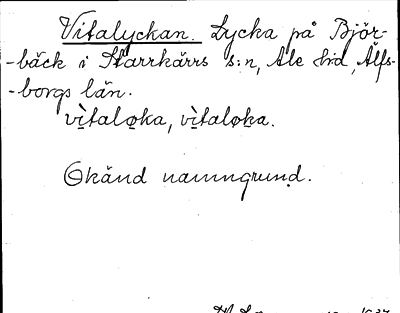 Vitalyckan. Lycka på Björ-
-bäck i Starrkärrs s:n, Ale hrd, Älfs-
-borgs län.
vìtalǫka, vìtalǫka.
Okänd namngrund.